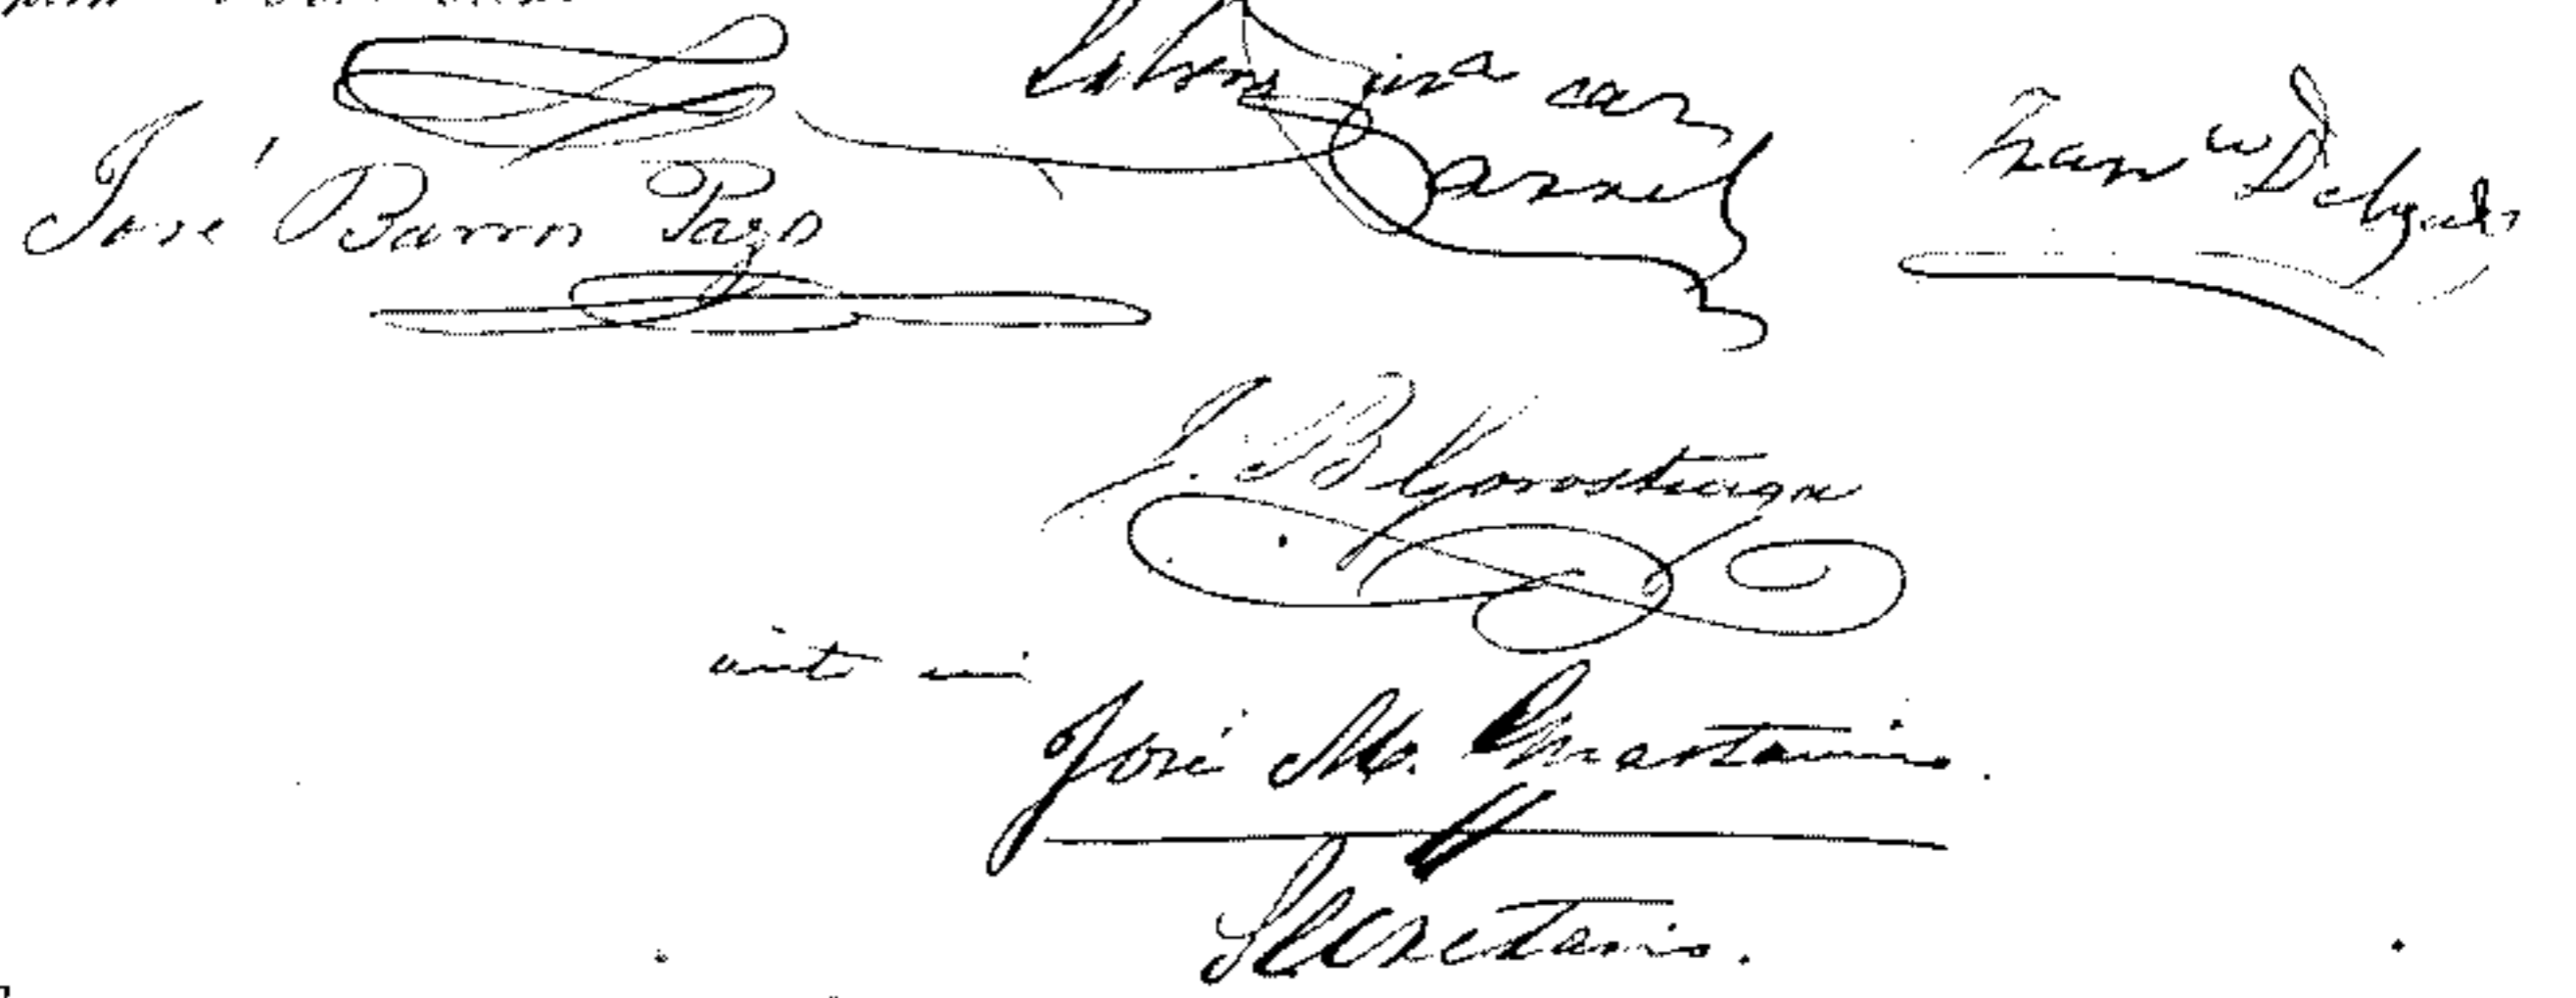 José Barros Pazos
Salvador Mª del Carril
Franco Delgado
J. B. Gorostiaga
ante mi
José M. Guastavino.
Secretario.